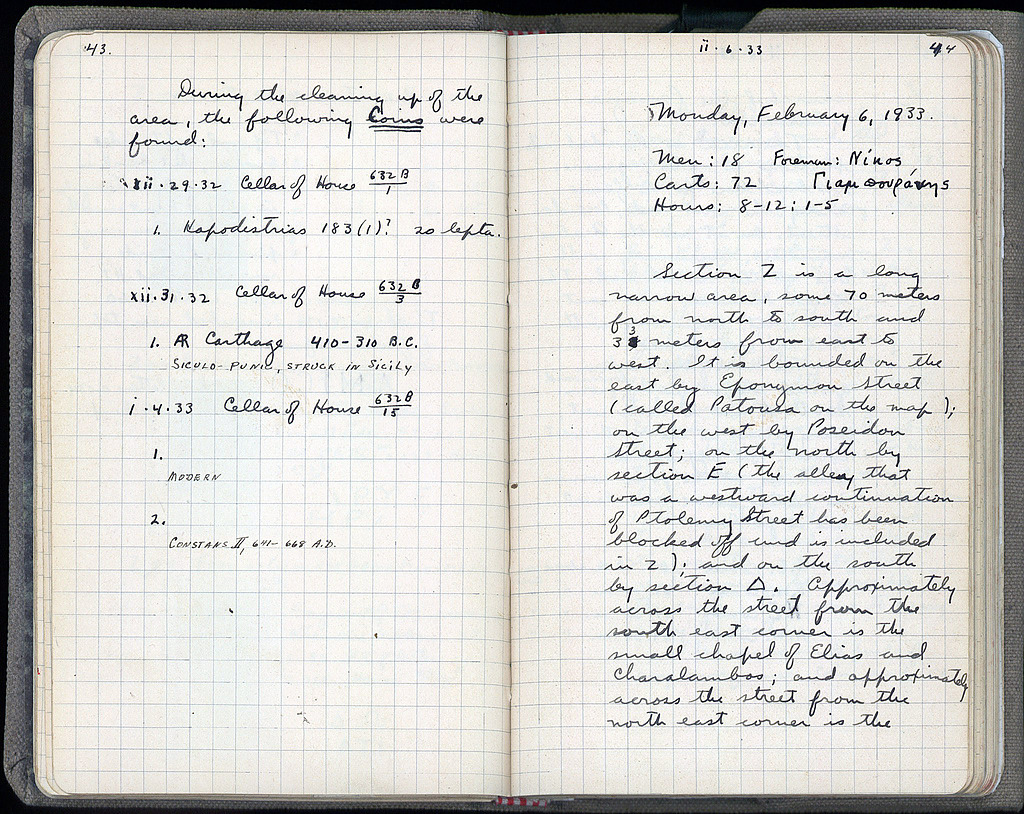 43.
During the cleaning up of the
area, the following Coins were
found:
xii·29·32 Cellar of House 632 B/1
1. Kapodistrias 183(1)? 20 lepta.
xii·31·32 Cellar of House 632 B/3
1. AR Carthage 410-310 B.C.
SICULO-PUNIC, STRUCK IN SICILY
i·4·33 Cellar of House 632 B/15
1.
MODERN
2.
CONSTANS II, 641-668 A.D.
ii·6·33
44
Monday, February 6, 1933.
Men: 18 Foreman: Νίκος
Carts: 72 Γιαμπουράνης
Hours: 8-12; 1-5
Section Z is a long
narrow area, some 70 meters
from north to south and
33 meters from east to
west. It is bounded on the
east by Eponymon Street
(called Patousa on the map);
on the west by Poseidon
Street; on the north by
section E (the alley that
was a westward continuation
of Ptolemy Street has been
blocked off and is included
in Z); and on the south
by section Δ. Approximately
across the street from the
south east corner is the
small chapel of Elias and
Charalambos; and approximately
across the street from the
north east corner is the